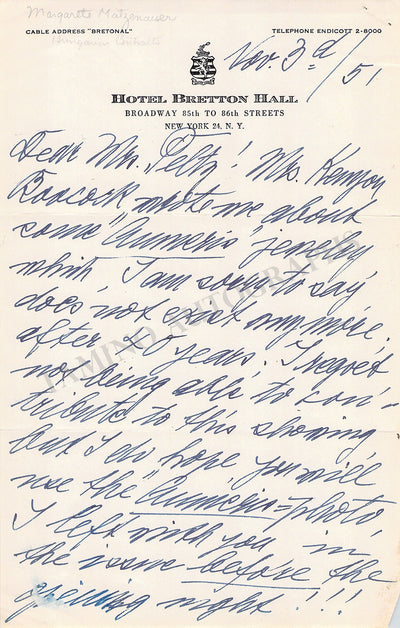 Margarete Matzenauer
Hungarian Contralto
CABLE ADDRESS "BRETONAL"
TELEPHONE ENDICOTT 2-8000
Nov. 3d/51
HOTEL BRETTON HALL
BROADWAY 85TH TO 86TH STREETS
NEW YORK 24, N. Y.
Dear Mrs. Peltz! Mrs. Kenyon
Boocock wrote me about
some "Amneris" jewelry
which, I am sorry to say,
does not exist any more
after 40 years. I regret
not being able to con-
tribute to this showing
and I do hope you will
use the "Amneris"-photo,
I left with you in
the issue before the
opening night!!!
TAMINO AUTOGRAPHS